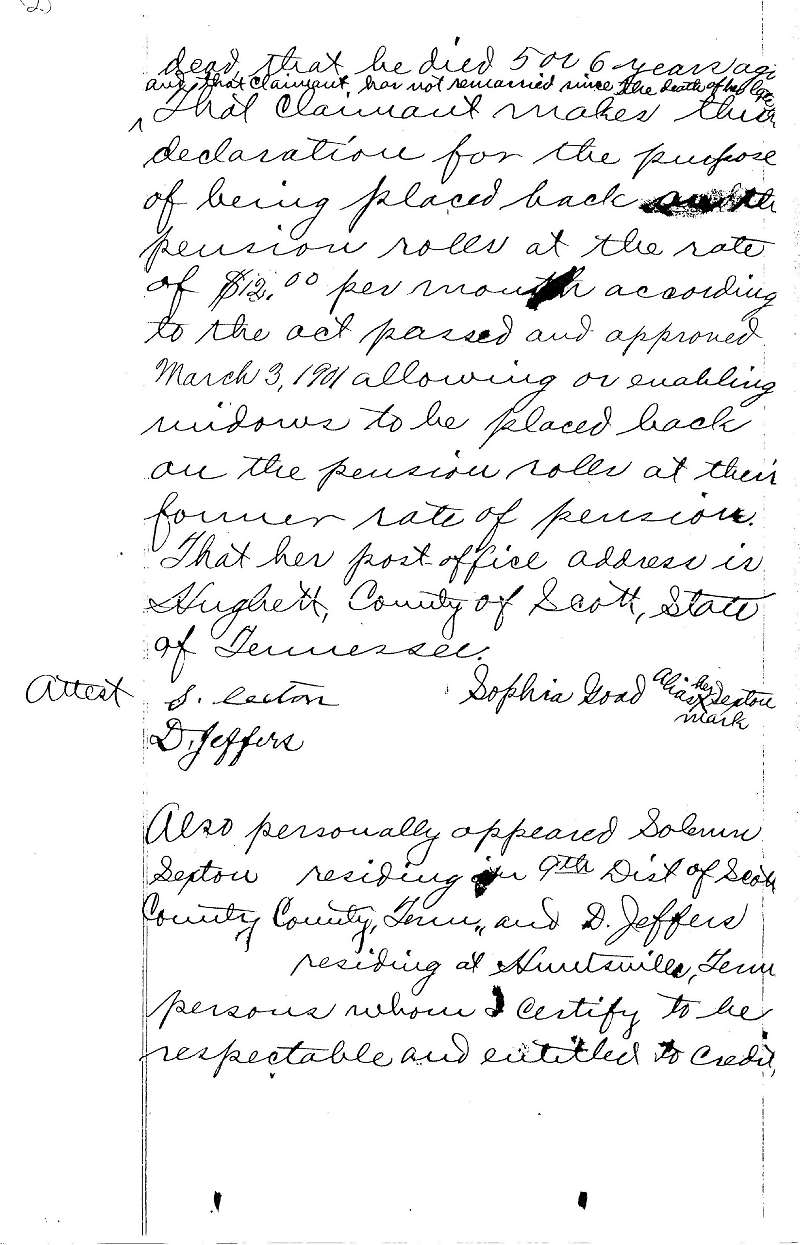 (2)
dead, that he died 5 or 6 years ago
and that claimant has not remarried since the death of her late
That claimant makes this
declaration for the purpose
of being placed back on the
pension rolls at the rate
of $12.00 per month according
to the act passed and approved
March 3, 1901 allowing or enabling
widows to be placed back
on the pension rolls at their
former rate of pension.
That her post office address is
Hughett, County of Scott, State
of Tennessee.
Attest S. Sexton Sophia Goad Alias Sexton
her
X
mark
D. Jeffers
Also personally appeared
Sexton residing in 9th Dist of Scott
County County, Tenn., and D. Jeffers
residing at Huntsville, Tenn
persons whom I certify to be
respectable and entitled to credit,